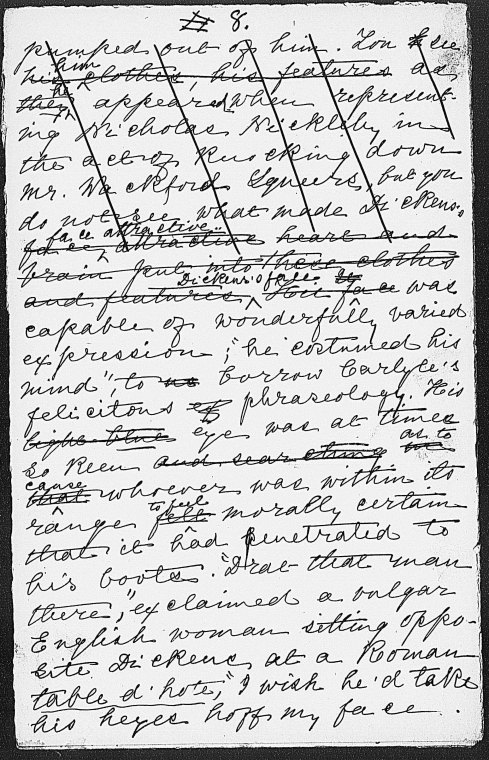 8.
pumped out of him. You see
his clothes, his features as him
they he appeared when represent-
ing Nicholas Nickleby in
the act of knocking down
Mr. Wackford Squeers, but you
do not see what made Dickens's
face attractive
face, attractive heart and
brain put into these clothes
Dickens's face
and features. His face was
capable of wonderfully varied
expression; "he costumed his
mind" to borrow Carlyle's
felicitous phraseology. His
light blue eye was at times
so keen and searching as to
cause
that whoever was within its
range to feel felt morally certain
that it had penetrated to
his boots. "Drat that man
there," exclaimed a vulgar
English woman sitting oppo-
site Dickens at a Roman
table d'hote, "I wish he'd take
his heyes hoff my face.